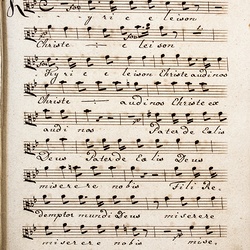 Kyrie eleison
Christe - eleison
Kyrie eleison Christe audi nos
Christe - audi nos Christe ex
audi nos Pater de Cœlis
Deus Pater de Cœlis Deus
miserere nobis Fili Re,
demptor mundi Deus miserere
miserere nobis mise,